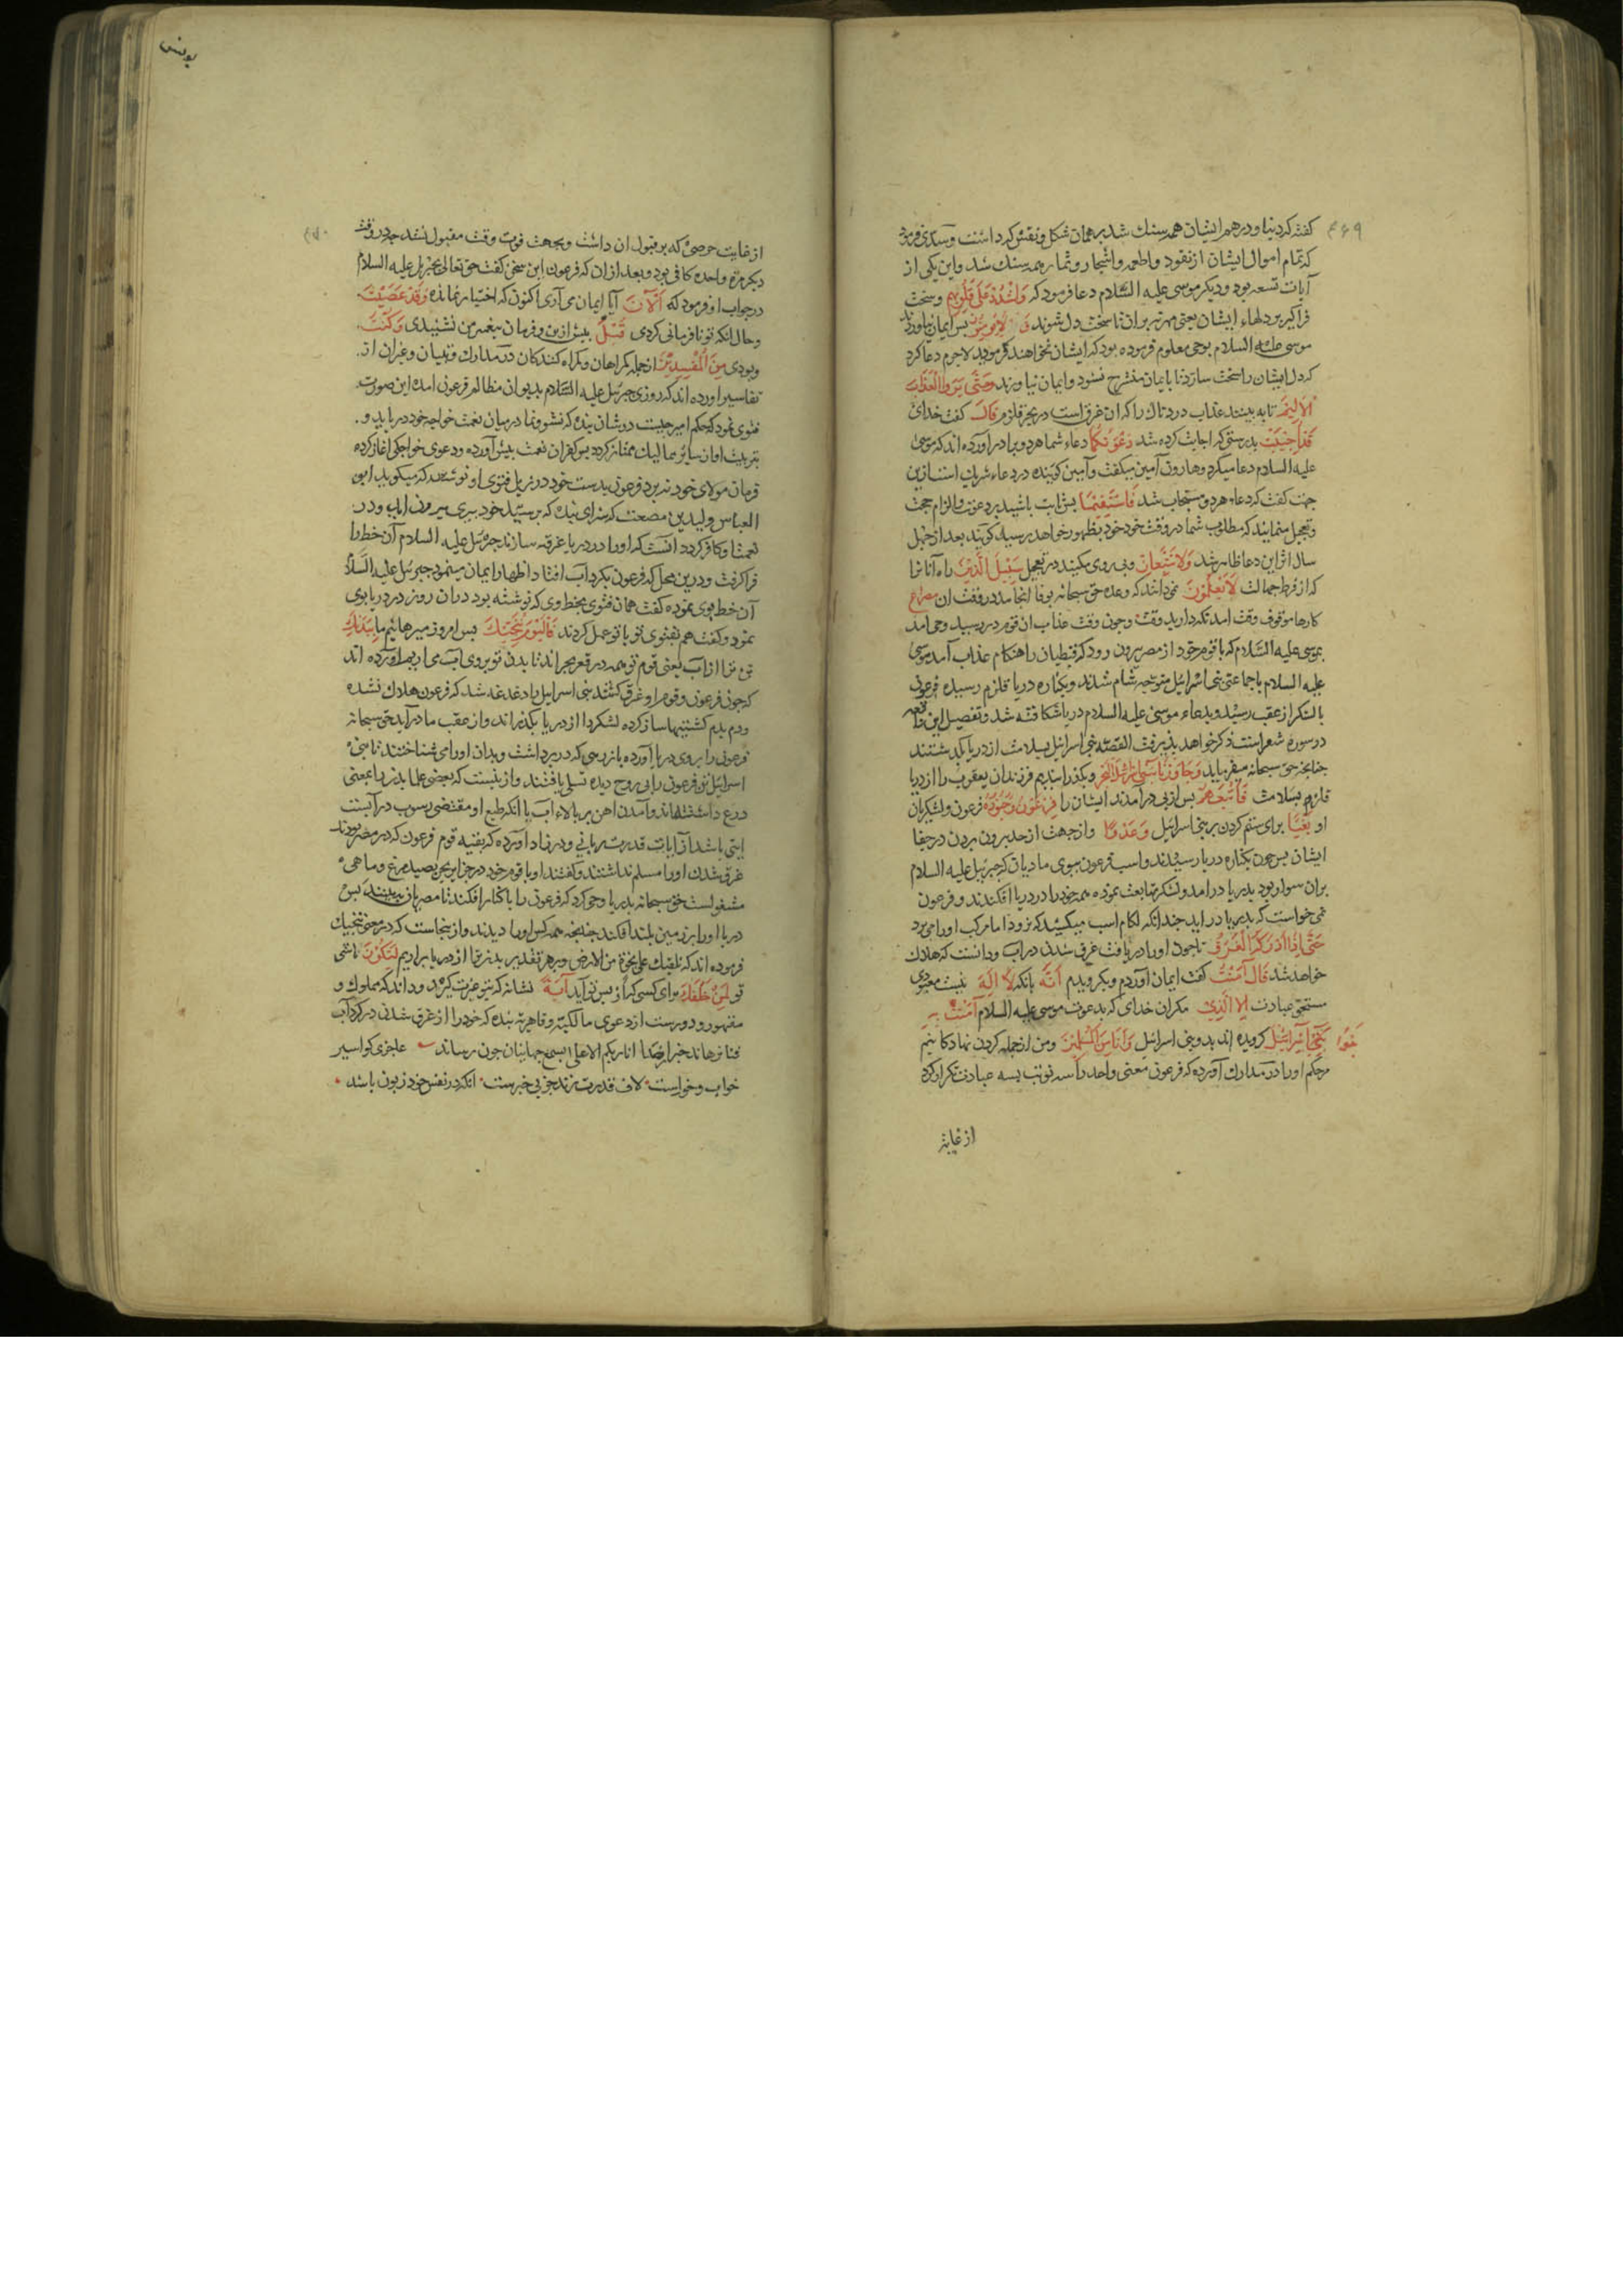 ۴۶۹
کفته که دینا و درهم ایشان همه سنك شد بر همان شکل و نقش که داشت و سدی فرمود
که تمام اموال ایشان از نقود و اطعمه و اشجار و ثمار همه سنك شد و این یکی از
آیات تسعه بود و دیکر موسی علیه السلام دعا فرمود که وَاشْدُدْ عَلَی قُلُوبِهِم و سخت
فراکیر بر دلهاء ایشان یعنی مهر نه بران تا سخت دل شوند فَلَا یُؤْمِنُوا پس ایمان نیاورند
موسی علیه السلام بوحی معلوم فرموده بود که ایشان نخواهند کرمود لاجرم دعا کرد
که دل ایشان را سخت سازد تا بایمان منشرح نشود و ایمان نیاورند حَتَّی یَرَوُا الْعَذَابَ
الاَلِیمَ تا به بینند عذاب دردناك را که ان غرق است در بحر قلزم قَالَ کفت خدای
قَدْ اُجِیبَتْ بدرستی که اجابت کرده شد دَعْوَتُکُمَا دعاء شما هر دو برادر آورده اند که موسی
علیه السلام دعا میکرد و هارون آمین میکفت و آمین کوینده در دعا شریك است ازین
جهت کفت که دعاء هر دو مستجاب شد فَاسْتَقِیمَا پس ثابت باشید بر دعوت و الزام حجت
و تعجیل منمایند که مطلوب شما در وقت خود خود بظهور خواهد رسید کویند بعد از چهل
سال اثر این دعا ظاهر شد وَلَا تَتَّبِعَانِّ و پی روی مکیند در تعجیل سَبِیلَ الَّذِینَ راه آنانرا
که از فرط جهالت لَا یَعْلَمُونَ نمی دانند که وعده حق سبحانه بوفا انجامد در وقت ان مصراع
کارها موقوف وقت امد نکه دارید وقت و چون وقت عذاب ان قوم در رسید وحی امد
بموسی علیه السلام که با قوم خود از مصر بیرون رود که قبطیان را هنکام عذاب آمد موسی
علیه السلام با جماعتی بنی اسرائیل متوجه شام شدند و بکناره دریا قلزم رسیده فرعون
با لشکر از عقب رسید و بدعاء موسی علیه السلام دریا شکافته شد و تفصیل این قصه
در سورة شعراست ذکر خواهد پذیرفت القصه بنی اسرائیل بسلامت از دریا بکذشتند
چنانچه حق سبحانه میفرماید وَجَاوَزْنَا بِبَنِی اِسْرَائِیلَ الْبَحْرَ و بکذرانیدیم فرزندان یعقوب را از دریا
قلزم بسلامت فَاَتْبَعَهُمْ پس از پی درآمدند ایشان را فِرْعَوْنُ وَجُنُودُهُ فرعون و لشکریان
او بَغْیًا برای ستم کردن بر بنی اسرائیل وَعَدْوًا و از جهت از حد بیرون بردن در جفا
ایشان پس چون بکناره دریا رسیدند و اسب فرعون ببوی مادیان که جبرئیل علیه السلام
بران سوار بود بدریا درامد و لشکر متابعت نموده همه خود را در دریا افکندند و فرعون
نمی خواست که بدریا در اید چندانکه لکام اسب میکشید که نرود اما مرکب اورا می برد
حَتَّی اِذَا اَدْرَکَهُ الْغَرَقُ تا چون اورا دریافت غرق شدن در اب و دانست که هلاك
خواهد شد قَالَ آمَنْتُ کفت ایمان آوردم و بکرویدم اَنَّهُ بانکه لَا اِلَهَ نیست معبودی
مستحق عبادت اِلَّا الَّذِی مکران خدای که بدعوت موسی علیه السلام آمَنَتْ بِهِ
بَنُوا بَنِی اِسْرَائِیلَ کرویده اند بدو بنی اسرائیل وَاَنَا مِنَ الْمُسْلِمِینَ و من از جمله کردن نهادکانیم
مرحکم اورا در مدارك آورده که فرعون معنی واحد را سه نوبت بسه عبارت تکرار کرد
از غایت
یونس
۴۷۰
از غایت حرصی که بر قبول ان داشت و بجهت فوت وقت مقبول نشد چه در وقت
دیکر مرة واحده کافی بود و بعد ازان که فرعون این سخن کفت حق تعالی بجبرئیل علیه السلام
در جواب او فرمود که آلْآنَ آیا ایمان می آری اکنون که اختیار نمانده وَقَدْ عَصَیْتَ
و حال انکه تو نافرمانی کردی قَبْلُ پیش ازین و فرمان پیغمبر من نشنیدی وَکُنْتَ
و بودی مِنَ الْمُفْسِدِینَ از جمله کمراهان و کمراه کنندکان در مدارك و تبیان و غیران از
تفاسیر اورده اند که روزی جبرئیل علیه السلام بدیوان مظالم فرعون امده این صورت
فتوی نمود که حکم امیر چیست در شان بنده که نشو و نما در میان نعمت خواجه خود دریابد و
بتربیت او از سایر ممالیك ممتاز کردد پس کفران نعمت پیش آورده و دعوی خواجکی اغاز کرده
فرمان مولای خود نبرد فرعون بدست خود در ذیل فتوی او نوشت که میکوید ابو
العباس ولید بن مصعب که سزای بنده که بر سید خود بیرون اید و در
نعمتها او کافر کردد انست که اورا در دریا غرقه سازند جبرئیل علیه السلام آن خط را
فرا کرفت و درین محل که فرعون بکرداب افتاد اظهار ایمان مینمود جبرئیل علیه السلام
آن خط بوی نموده کفت همان فتوی بخط وی که نوشته بود دران روز در دریا بوی
نمود و کفت هم بفتوی تو با تو عمل کردند فَالْیَوْمَ نُنَجِّیكَ پس امروز میرهانیم ما بِبَدَنِكَ
تن ترا از اب یعنی قوم تو همه در قعر بحراند تا بدن تو بروی اب می اریم اورده اند
که چون فرعون و قوم او غرق کشتند بنی اسرائیل را دغدغه شد که فرعون هلاك نشده
ودم بدم کشتیها ساز کرده لشکر را از دریا بکذراند و از عقب ما درآید حق سبحانه
فرعون را بروی دریا آورده با زرهی که در بر داشت و بدان اورا می شناختند تا بنی
اسرائیل تن فرعون را بی روح دیده تسلی یافتند و ازینست که بعضی علما بدن را بمعنی
درع داشته اند و آمدن اهن بر بالاء آب با انکه طبع او مقتضی رسوب در آبست
ایتی باشد از آیات قدرت ربانی و در زاد اورده که بقیه قوم فرعون که در مصر بودند
غرق شدن اورا مسلم نداشتند و کفتند او با قوم خود در جزایر بحر بصید مرغ و ماهی
مشغولست حق سبحانه بدریا وحی کرد که فرعون را با کنار افکند تا مصریان به بینند پس
دریا اورا بر زمین بلند افکند چنانچه همه کس اورا دیدند و ازینجاست که در معنی ننجیك
فرموده اند که نلقیك علی نجوة من الارض و بر هر تقدیر بدن ترا از دریا برآریم لِتَکُونَ تا باشی
تو لِمَنْ خَلْفَكَ برای کسی که از پس تو آید آیَةً نشانه که بتو عبرت کیرد و داند که مملوك و
مقهور و دورست از دعوی مالکیت و قاهریت بنده که خود را از غرق شدن در کرداب
فنا نرهاند خبر انا ربکم الاعلی بسمع جهانیان چون رساند عاجزی کو اسیر
خواب و خوراست لاف قدرت زند چه بی خبر ست انکه در نفس خود زبون باشد